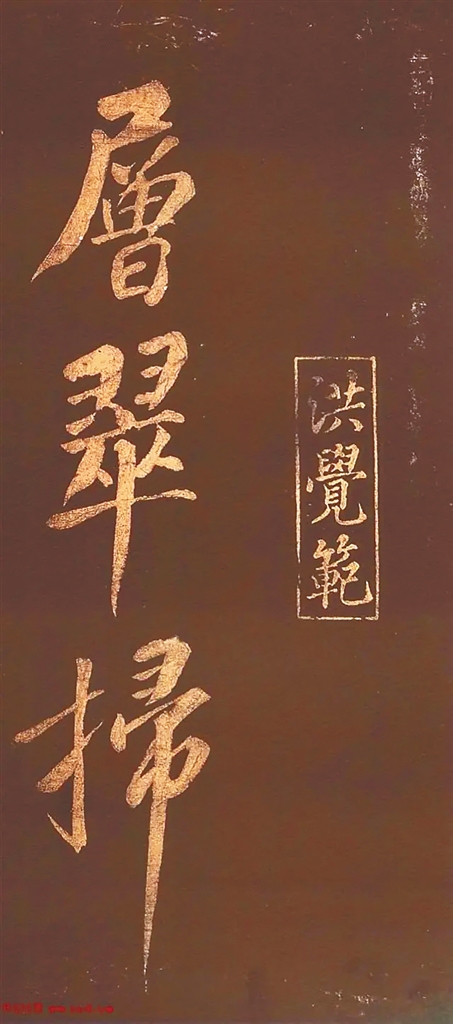 洪覺範
層翠掃